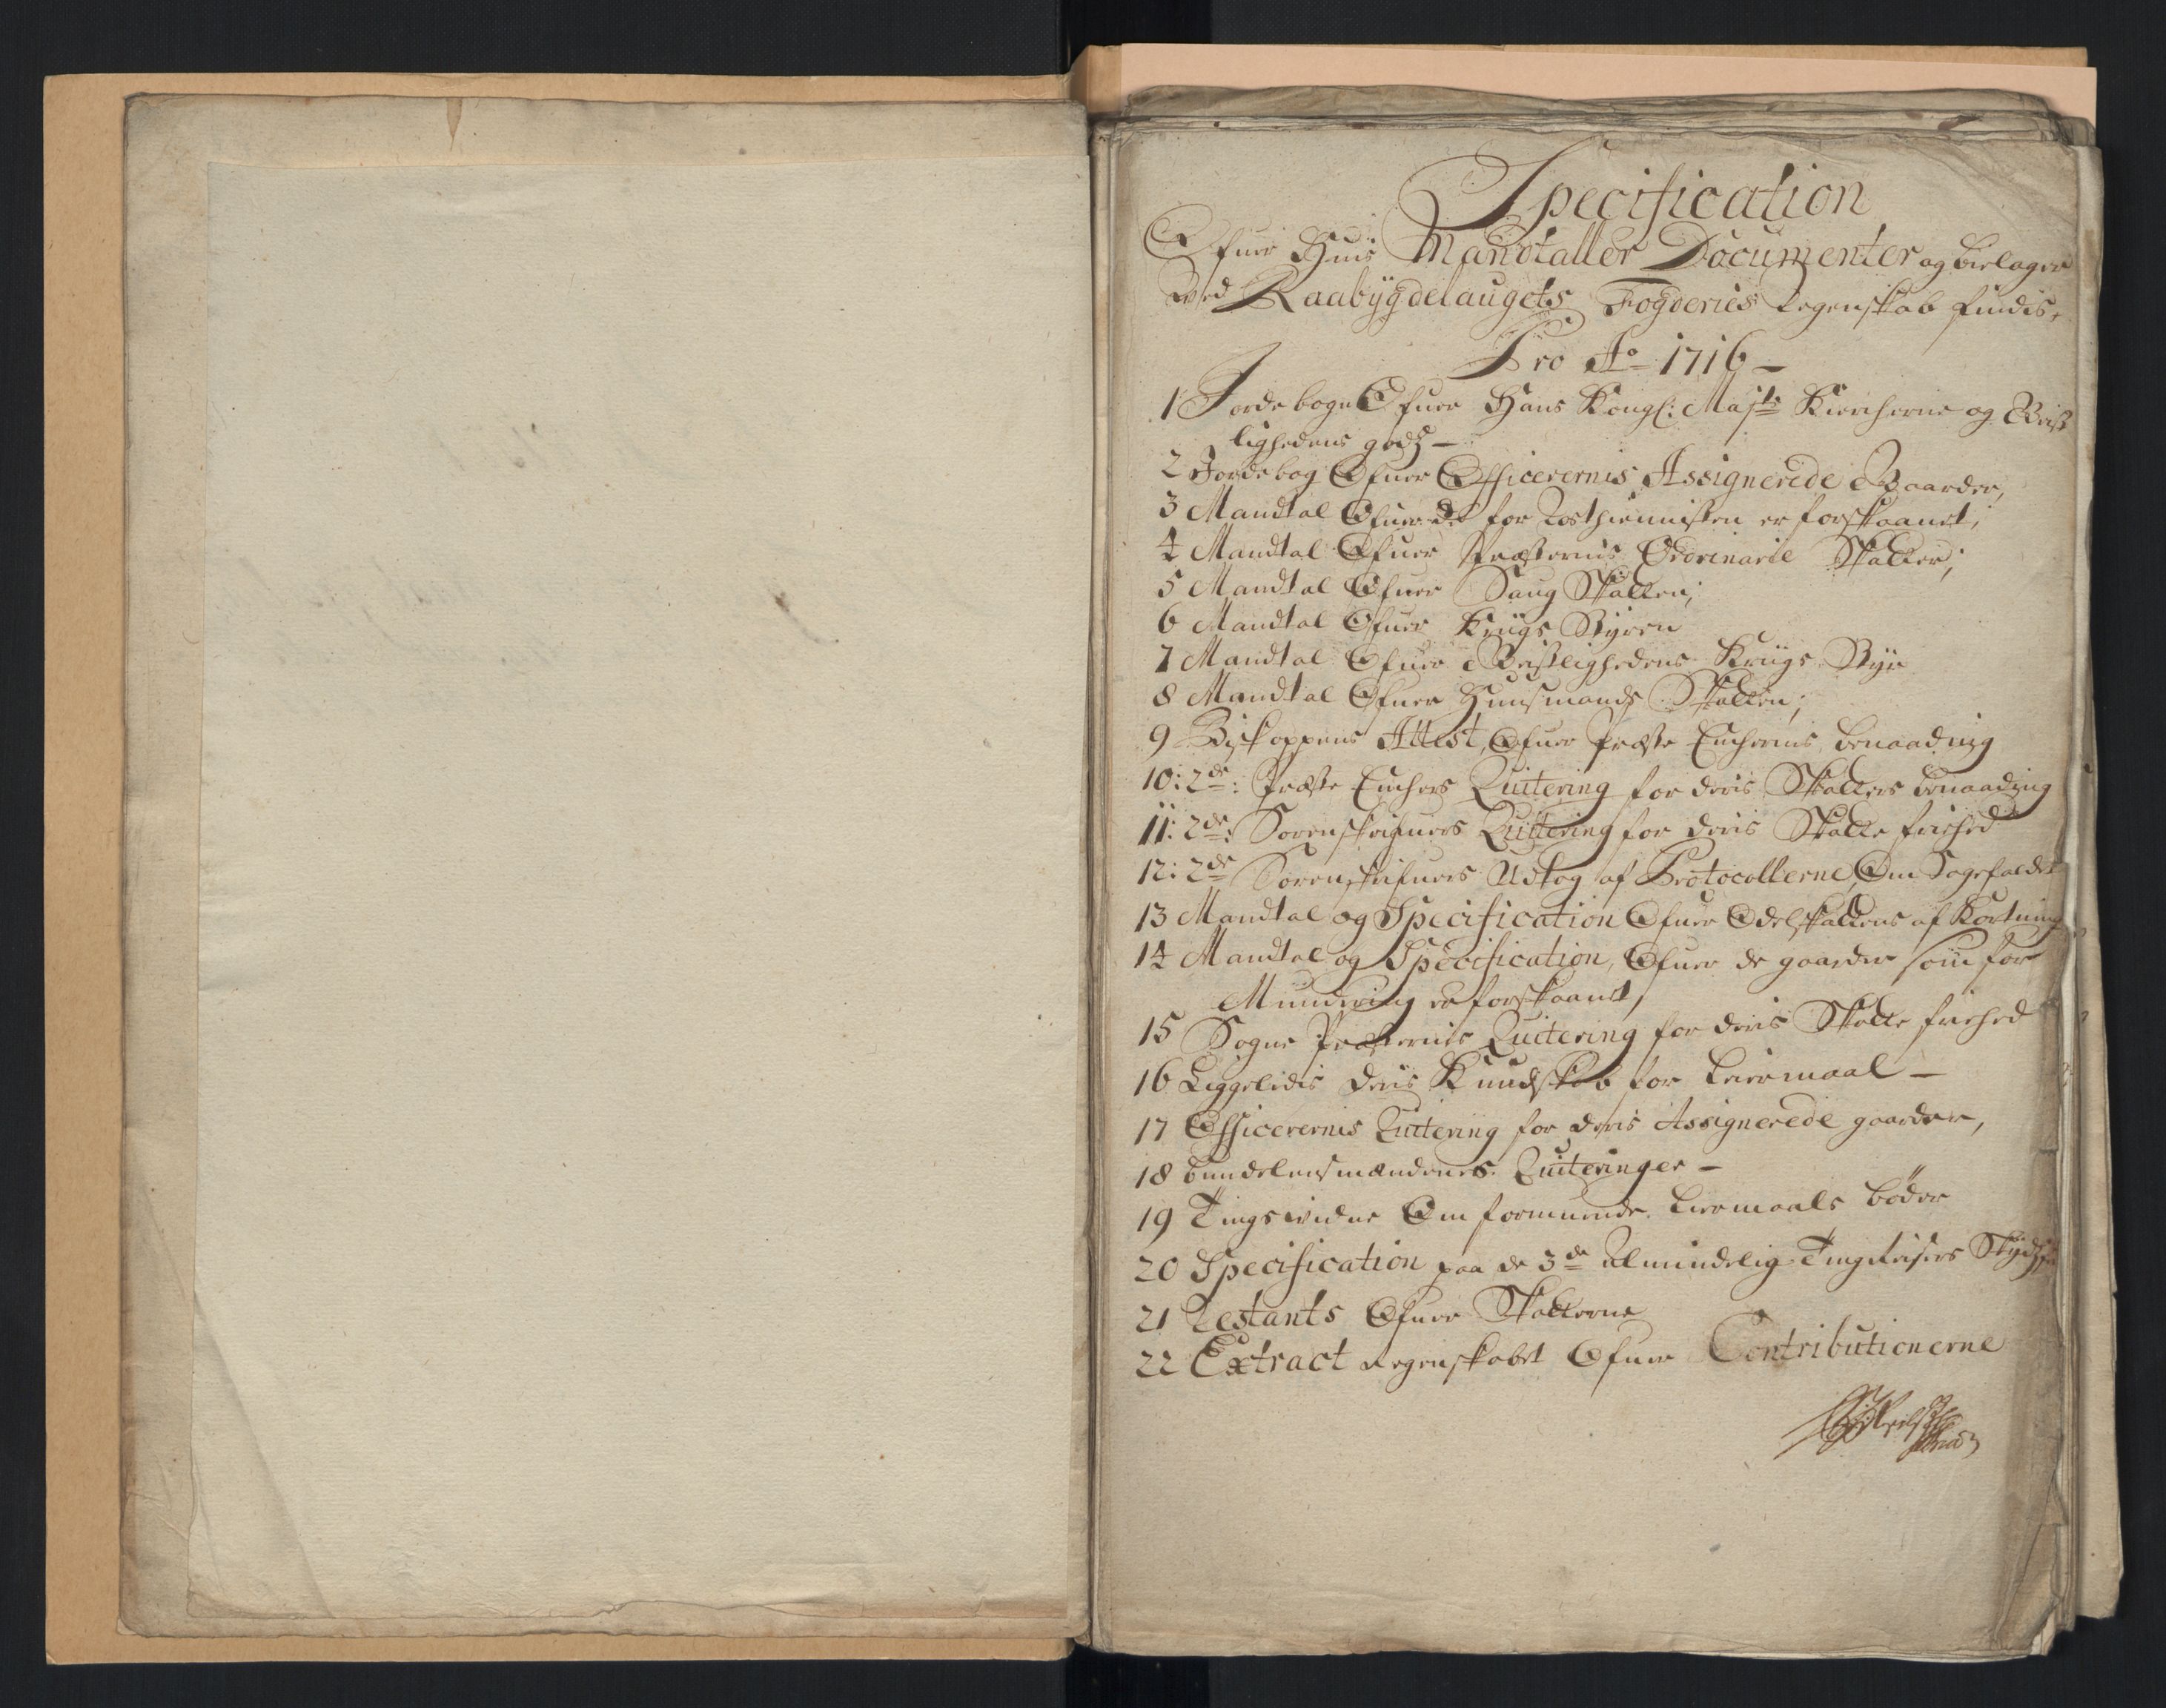 Specification
Ofuer Huis Mandtaller Documenter og bielager
Ved Raabÿgdelaugets Fogderies Regenskab findis,
Pro Ao 1716 –
1 Jordebogn Ofuer Hans Kongl: Majts Kircherne og Geist
lighedens godz –
2 Jordebog Ofuer Officerernis Assignerede Gaarder,
3 Mandtal Ofuer de for Rosthiennisten er forskaanet,
4 Mandtal Ofuer Præsternis Ordrinarie Skatter,
5 Mandtal Ofuer Saug Skatten,
6 Mandtal Ofuer Kriigs Styren
7 Mandtal Ofuer Geistlighedens Kriigs Styr
8 Mandtal Ofuer Huusmands Skatten,
9 Biskoppens Attest, Ofuer Præste Enchernis benaading
10: 2de: Præste Enchers Quitering for deris Skatters benaading
11: 2de: Sorenskrifuers Quittering for deris Skatte friehed
12: 2de Sorenskrifuers Udtog af Protocollerne, Om Sagefaldet
13 Mandtal og Specification Ofuer Odelskattens af Kortning
14 Mandtal og Specification, Ofuer de gaarder som for
Mundering er forskaanet,
15 Sogne Præsternis Quitering for deris Skatte friehed
16 Liggeledis deris Kundskab for Leiermaal –
17 Officerernis Quitering for deris Assignerede gaarder,
18 bundelensmændenes Quiteringer –
19 Tingsvidne Om formuende Leiermaals bøder
20 Specification paa de 3de Almindelig Ting Reisers Skyds
21 Restants Ofuer Skatterne
22 Extract Regenskabet Ofuer Contributionerne